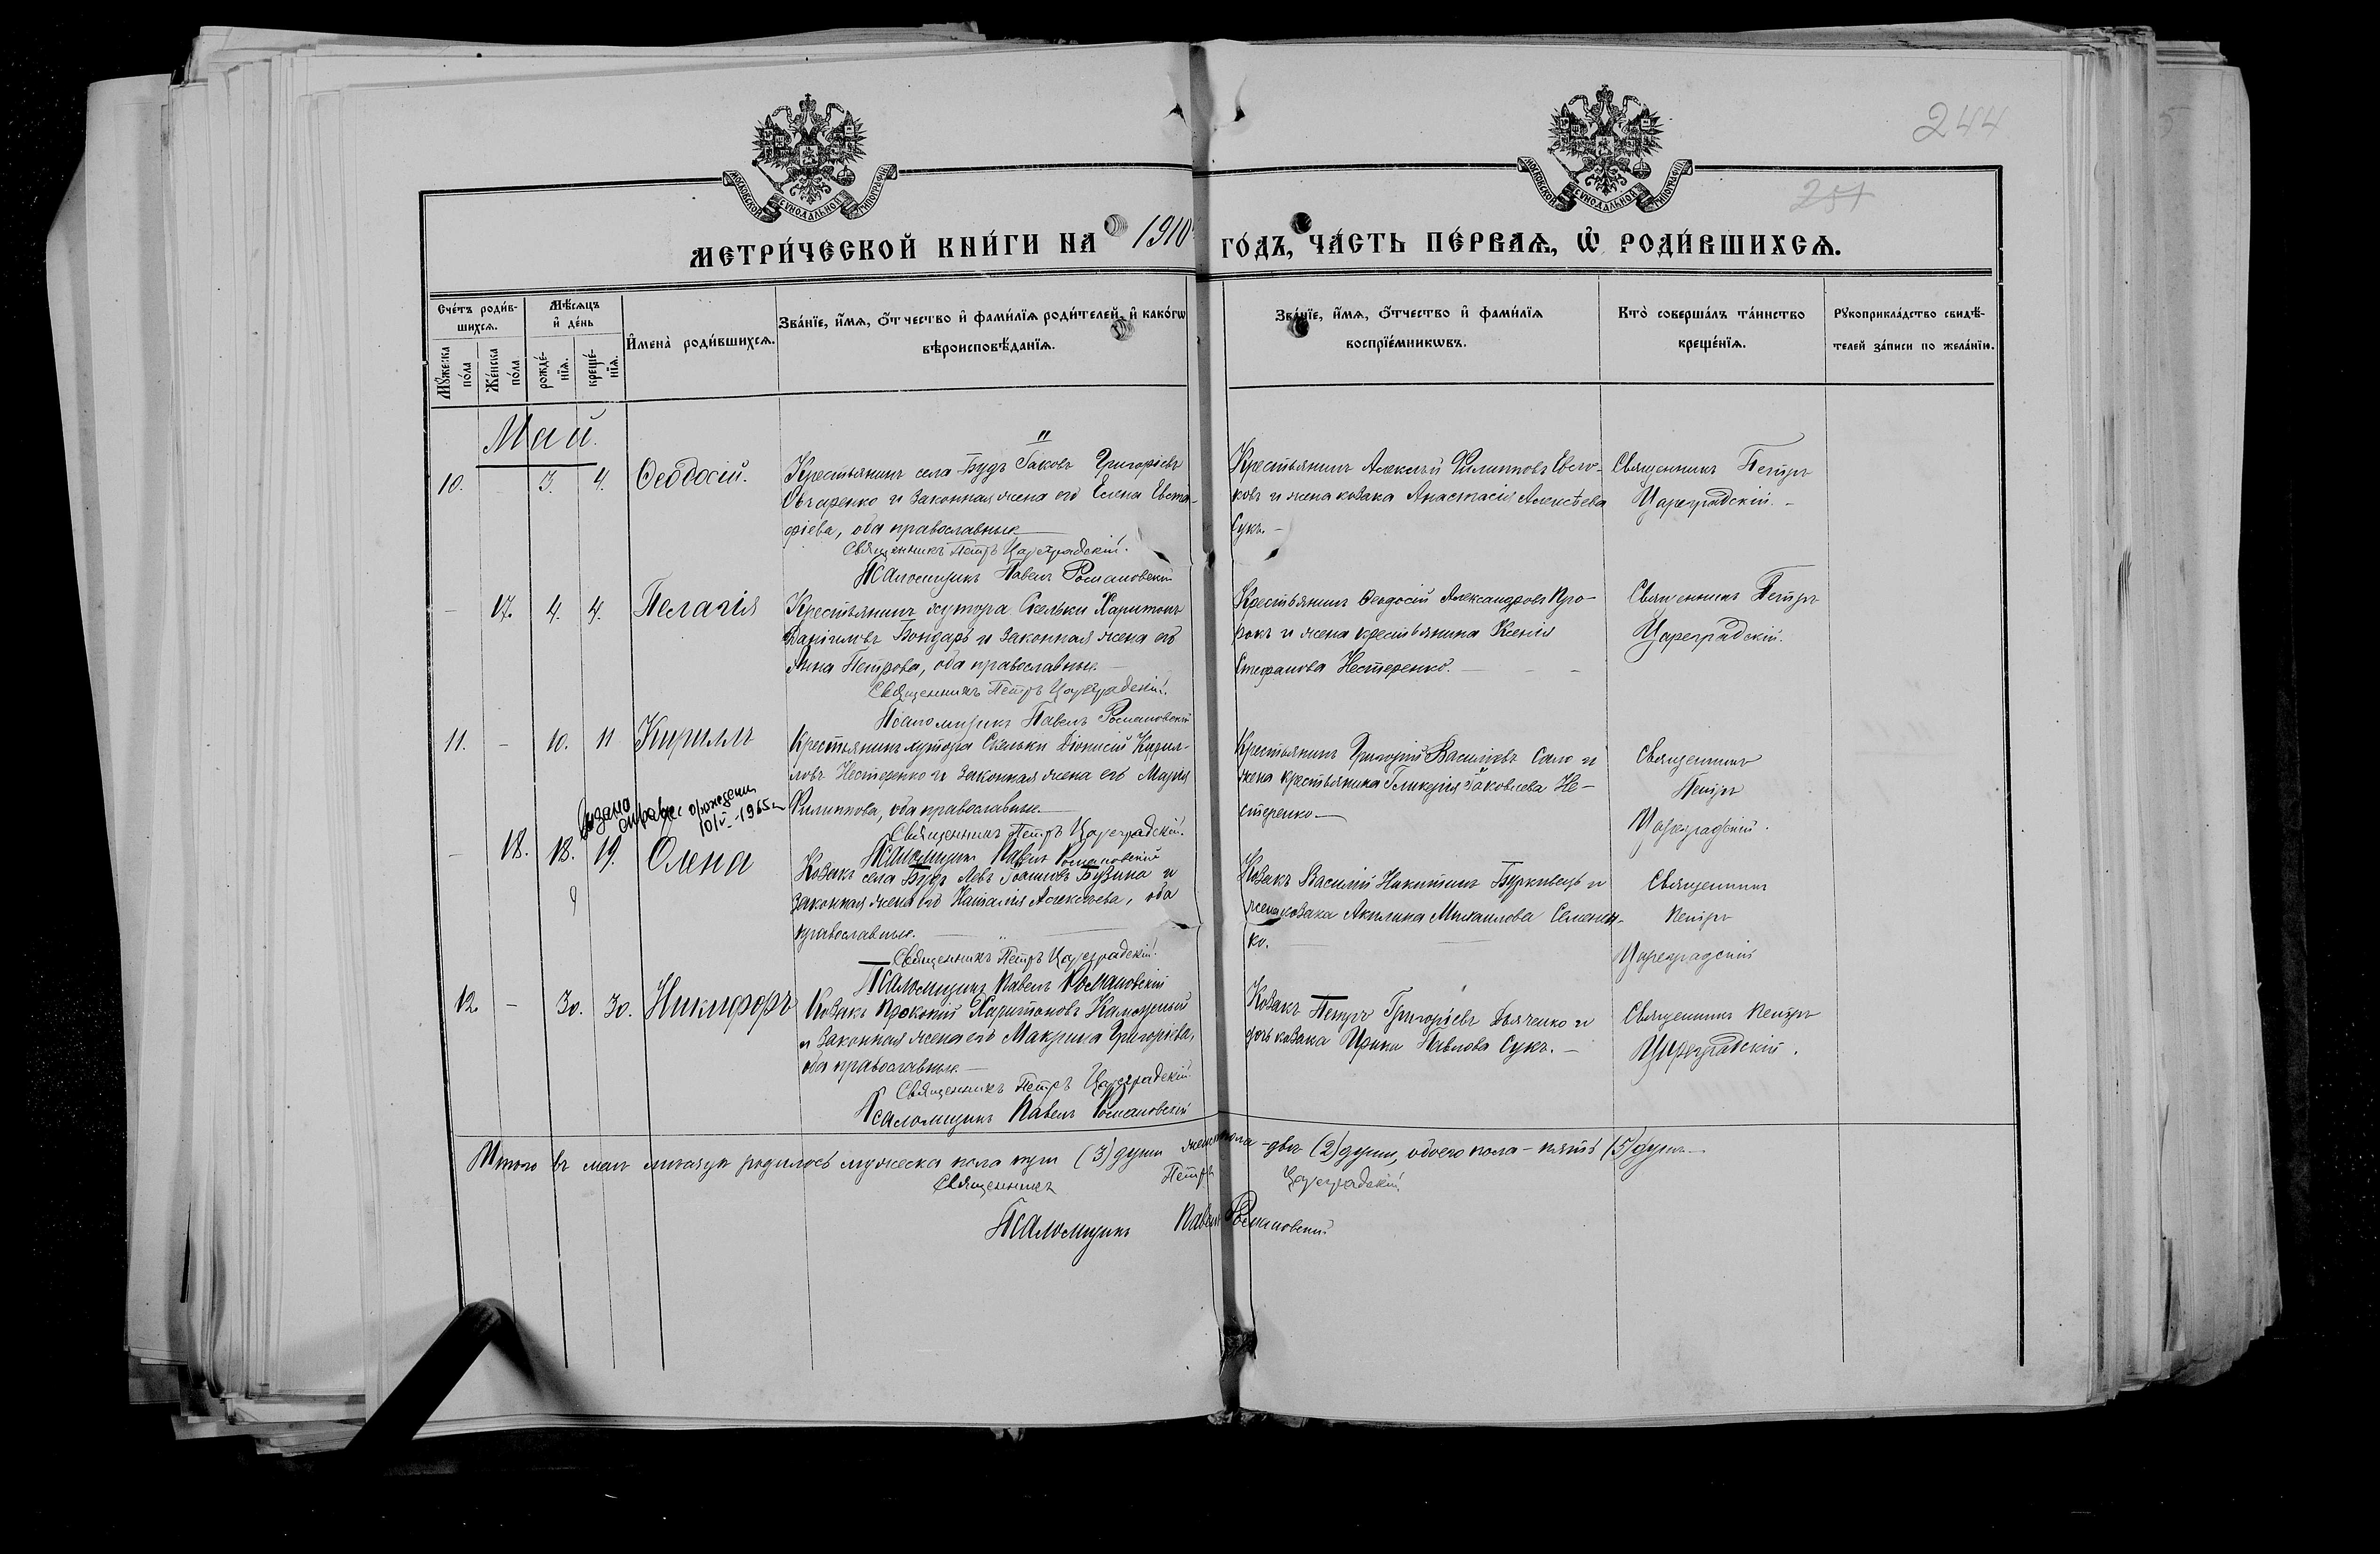 244
251
МОСКОВСКОЙ СѴНОДАЛЬНОЙ ТИПОГРАФІИ
МОСКОВСКОЙ СѴНОДАЛЬНОЙ ТИПОГРАФІИ
МЕТРИ́ЧЕСКОЙ КНИ́ГИ НА 1910 ГО́ДЪ, ЧА́СТЬ ПЕ́РВАѦ, Ѽ РОДИ́ВШИХСѦ.
Сче́тъ роди́в-
шихсѧ.
Мѣ́сѧцъ
и҆ де́нь
Мꙋ́жеска
по́ла
Же́нска
по́ла
рожде́-
нїѧ.
креще́-
нїѧ.
И҆мена̀ роди́вшихсѧ.
Зва́нїе, и҆́мѧ, ѻ҆́тчество и҆ фами́лїѧ роди́телей, и҆ како́гѡ
вѣроисповѣ́данїѧ.
Зва́нїе, и҆́мѧ, ѻ҆́тчество и҆ фами́лїѧ
воспрїе́мникѡвъ.
Кто̀ соверша́лъ та́инство
креще́нїѧ.
Рꙋкоприкла́дство свидѣ́-
телей за́писи по жела́нїю.
Май.
10. 3. 4. Ѳеодосій.
Крестьянинъ села Будъ Іаковъ Григоріевъ
Овчаренко и законная жена его Елена Евста-
фіева, оба православные
Священникъ Петръ Цареградскій.
Псаломщикъ Павелъ Романовскій
Крестьянинъ Алексѣй Филипповъ
и жена козака Анастасія Алексѣева
Сукъ. –
Священникъ Петръ
Цареградскій. –
– 17. 4. 4. Пелагія
Крестьянинъ хутора Скельки Харитонъ
Даніиловъ Бондарь и законная жена его
Анна Петрова, оба православные
Священникъ Петръ Цареградскій.
Псаломщикъ Павелъ Романовскій
Крестьянинъ Ѳеодосій Александровъ Про-
рокъ и жена крестьянина Ксенія
Стефанова Нестеренко.
Священникъ Петръ
Цареградскій.
11. – 10. 11 Кириллъ
Крестьянинъ хутора Скельки Діонисій Кирил-
ловъ Нестеренко и законная жена его Марія
Филиппова, оба православные
Священникъ Петръ Цареградскій.
Псаломщикъ Павелъ Романовскій
Крестьянинъ Григорій Васильевъ Сало и
жена крестьянина Гликерія Іаковлева Не-
стеренко
Священникъ
Петръ
Цареградскій.
о рождении
10/V-1965
– 18. 18. 19. Олена
Козакъ села Будъ Левъ Іоанновъ Бузина и
законная жена его Наталія Алексѣева, оба
православные.
Священникъ Петръ Цареградскій.
Псаломщикъ Павелъ Романовскій
Козакъ Василій Никитинъ Бурковецъ и
жена козака Акилина Михаилова Семенен-
ко.
Священникъ
Петръ
Цареградскій
12 – 30. 30. Никифоръ
Козакъ Прокопій Харитоновъ
и законная жена его Макрина Григоріева,
оба православные
Священникъ Петръ Цареградскій
Псаломщикъ Павелъ Романовскій
Козакъ Петръ Григоріевъ Дяченко и
дочь козака Ирина Павлова Сукъ. –
Священникъ Петръ
Цареградскій.
Итого въ маѣ мѣсяцѣ родилось мужеска пола три (3) души женска пола – двѣ (2) души, обоего пола – пять (5) душъ.
Священникъ Петръ Цареградскій
Псаломщикъ Павелъ Романовскій